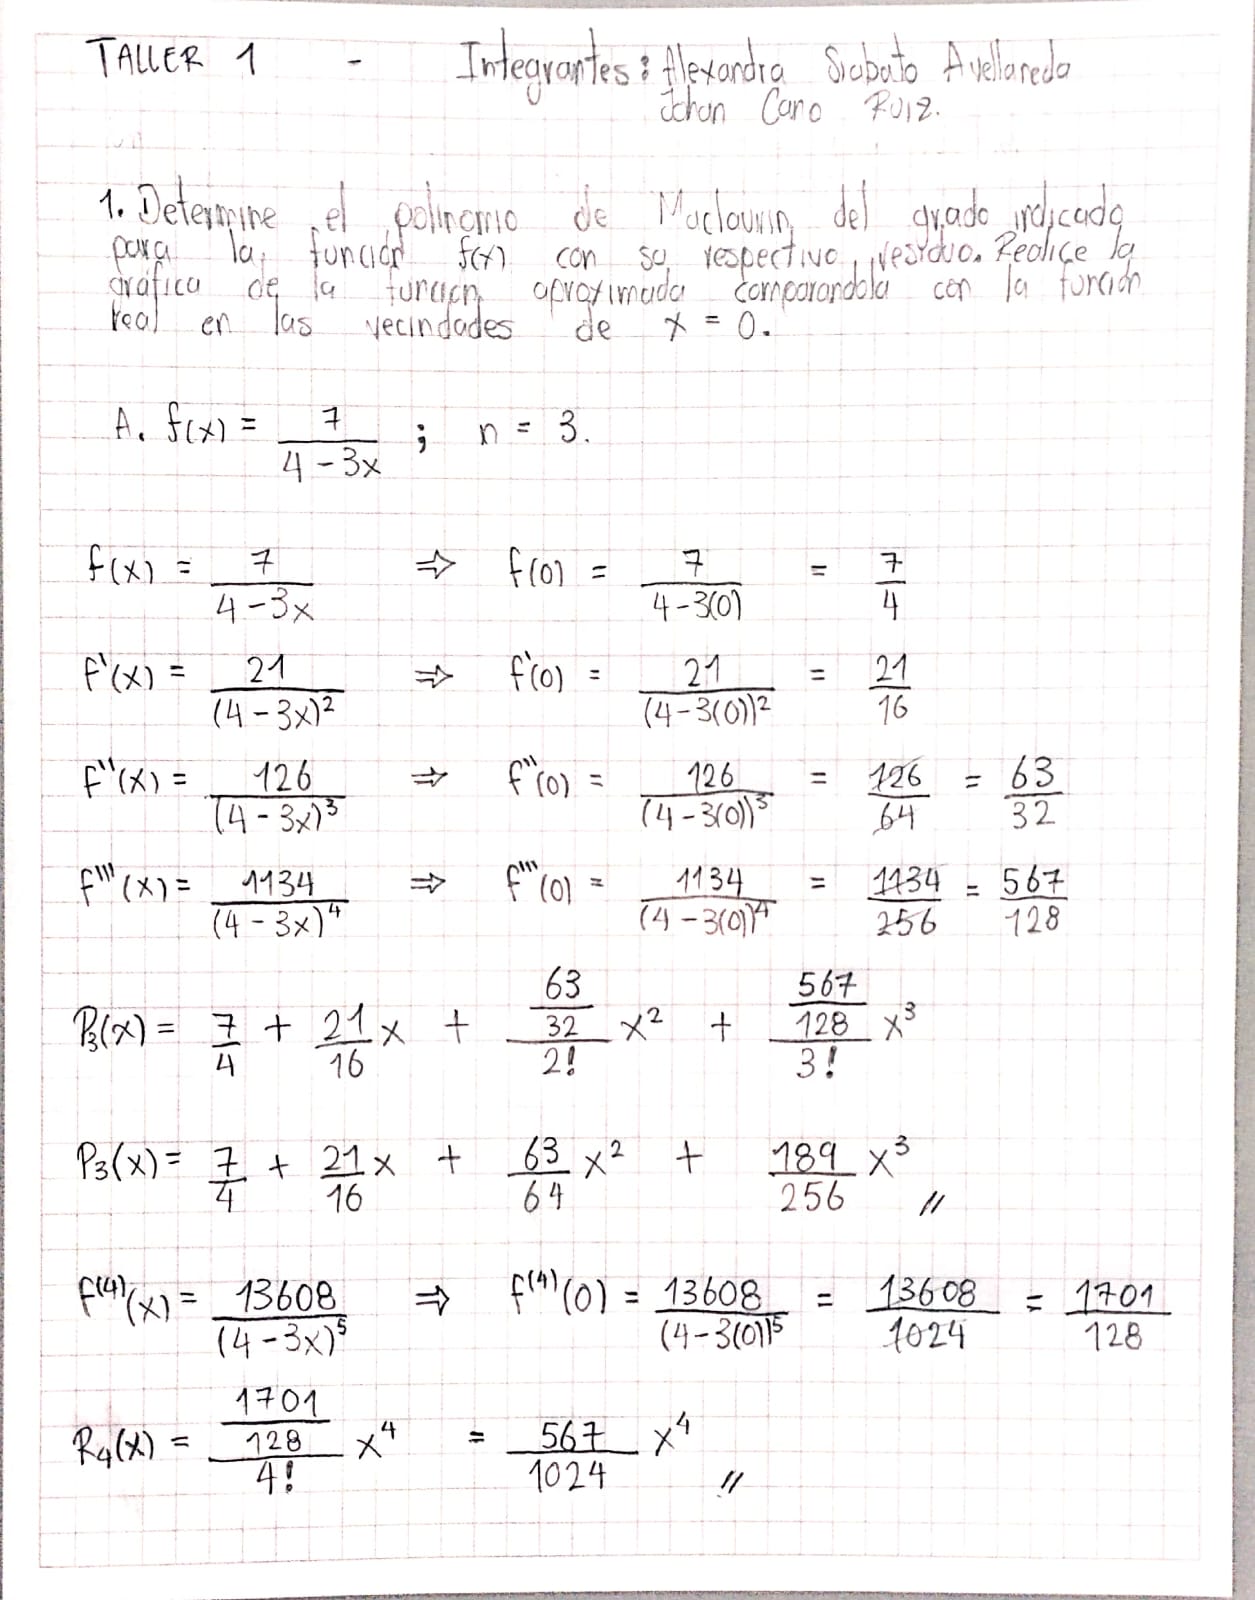 TALLER 1 - Integrantes: Alexandra Siabato Avellaneda
Johan Caro Ruiz.
1. Determine el polinomio de Maclaurin del grado indicado
para la función f(x) con su respectivo residuo. Realice la
gráfica de la función aproximada comparandola con la función
real en las vecindades de x = 0.
A. f(x) = 7/(4-3x) ; n = 3.
f(x) = 7/(4-3x) ⇒ f(0) = 7/(4-3(0)) = 7/4
f'(x) = 21/(4-3x)^2 ⇒ f'(0) = 21/(4-3(0))^2 = 21/16
f''(x) = 126/(4-3x)^3 ⇒ f''(0) = 126/(4-3(0))^3 = 126/64 = 63/32
f'''(x) = 1134/(4-3x)^4 ⇒ f'''(0) = 1134/(4-3(0))^4 = 1134/256 = 567/128
P3(x) = 7/4 + 21/16 x + (63/32)/2! x^2 + (567/128)/3! x^3
P3(x) = 7/4 + 21/16 x + 63/64 x^2 + 189/256 x^3 //
f^(4)(x) = 13608/(4-3x)^5 ⇒ f^(4)(0) = 13608/(4-3(0))^5 = 13608/1024 = 1701/128
R4(x) = (1701/128)/4! x^4 = 567/1024 x^4 //